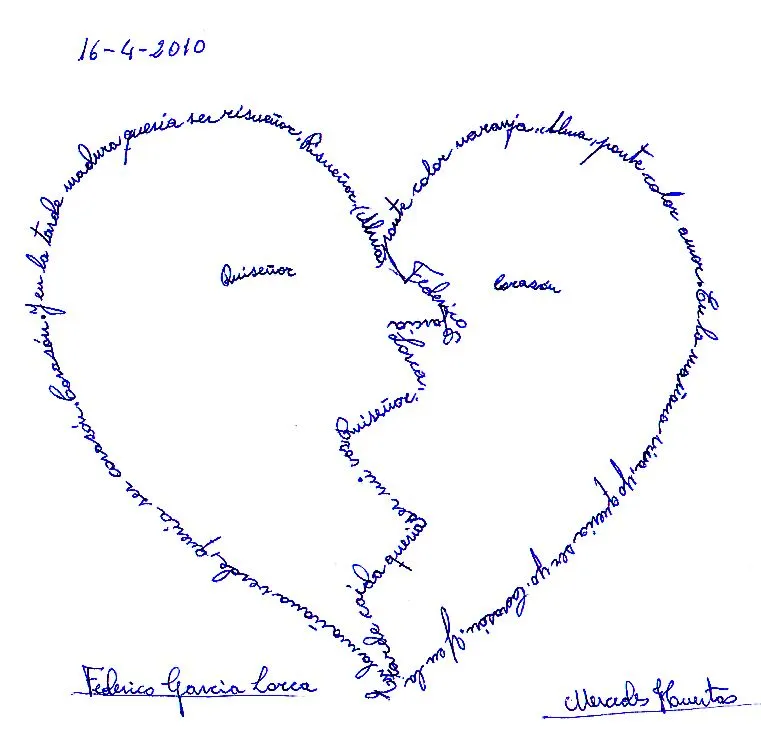 16-4-2010
En la mañana verde, quería ser corasón. Corasón. Y en la tarde madura quería ser risueñor. Risueñor. (Alma, ponte color naranja. Alma, ponte color amor. En la mañana viva, yo quería ser yo. Corasón. Y en la
tarde caída quería ser mi voz. Ruiseñor.
Federico García Lorca.
Ruiseñor
Corasón
Federico García Lorca
Mercedes Huertas